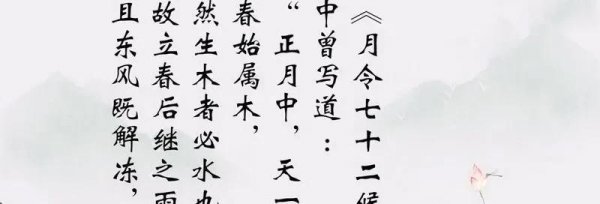 《月令七十二候
中曾写道：
“正月中，天一
春始属木，
然生木者必水也
故立春后继之雨
且东风既解冻，